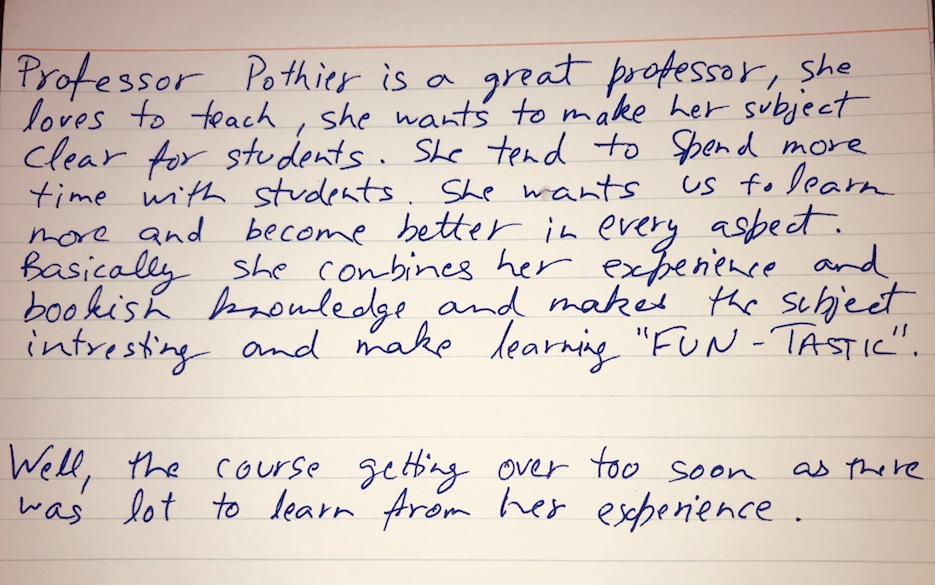 Professor Pothier is a great professor, she
loves to teach, she wants to make her subject
clear for students. She tend to spend more
time with students. She wants us to learn
more and become better in every aspect.
Basically she combines her experience and
bookish knowledge and makes the subject
intresting and make learning "FUN-TASTIC".
Well, the course getting over too soon as there
was lot to learn from her experience.